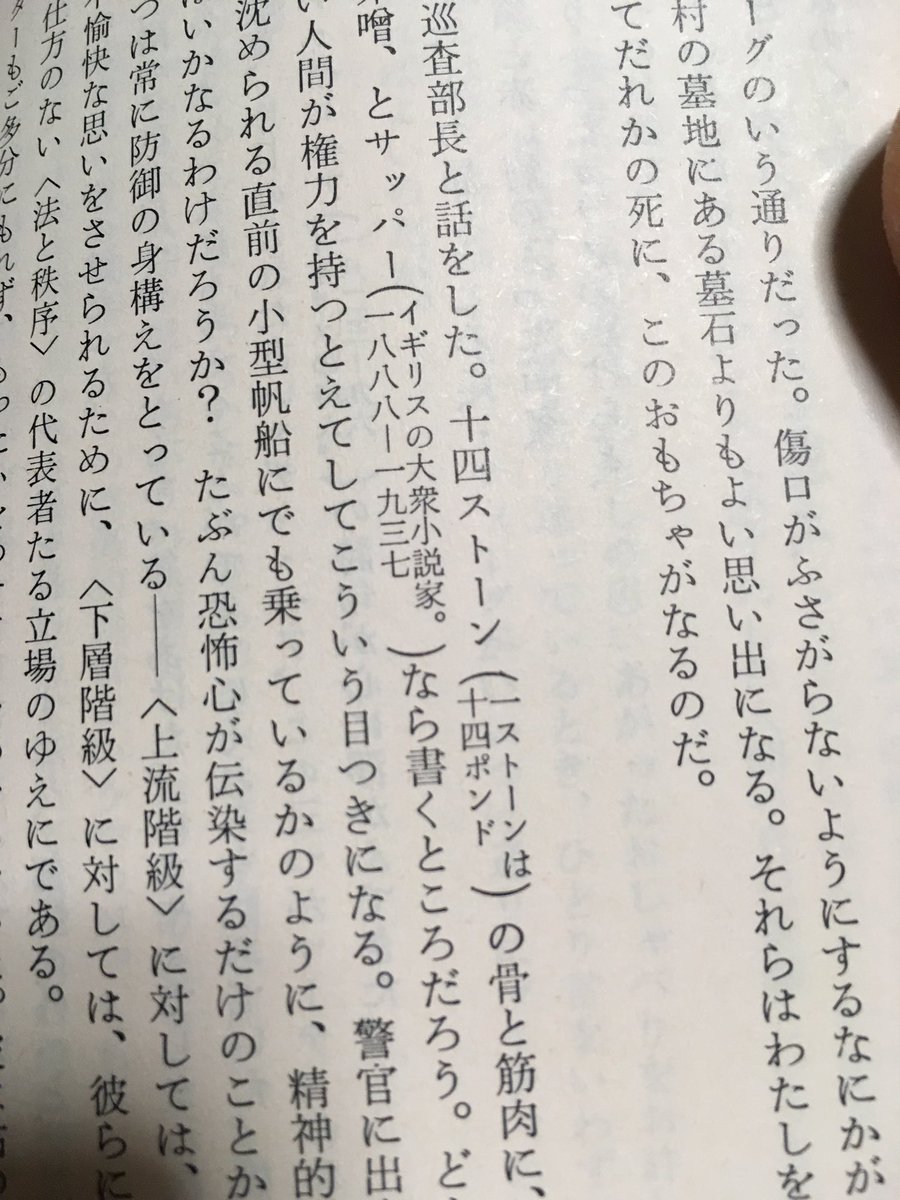 ーグのいう通りだった。傷口がふさがらないようにするなにかが
村の墓地にある墓石よりもよい思い出になる。それらはわたしを
てだれかの死に、このおもちゃがなるのだ。
巡査部長と話をした。十四ストーン(一ストーンは十四ポンド)の骨と筋肉に、
噌、とサッパー(イギリスの大衆小説家。一八八八―一九三七)なら書くところだろう。ど
い人間が権力を持つとえてしてこういう目つきになる。警官に出
沈められる直前の小型帆船にでも乗っているかのように、精神的
はいかなるわけだろうか? たぶん恐怖心が伝染するだけのことか
つは常に防御の身構えをとっている――〈上流階級〉に対しては、
愉快な思いをさせられるために、〈下層階級〉に対しては、彼らに
仕方のない〈法と秩序〉の代表者たる立場のゆえにである。
ーもご多分にもれず、